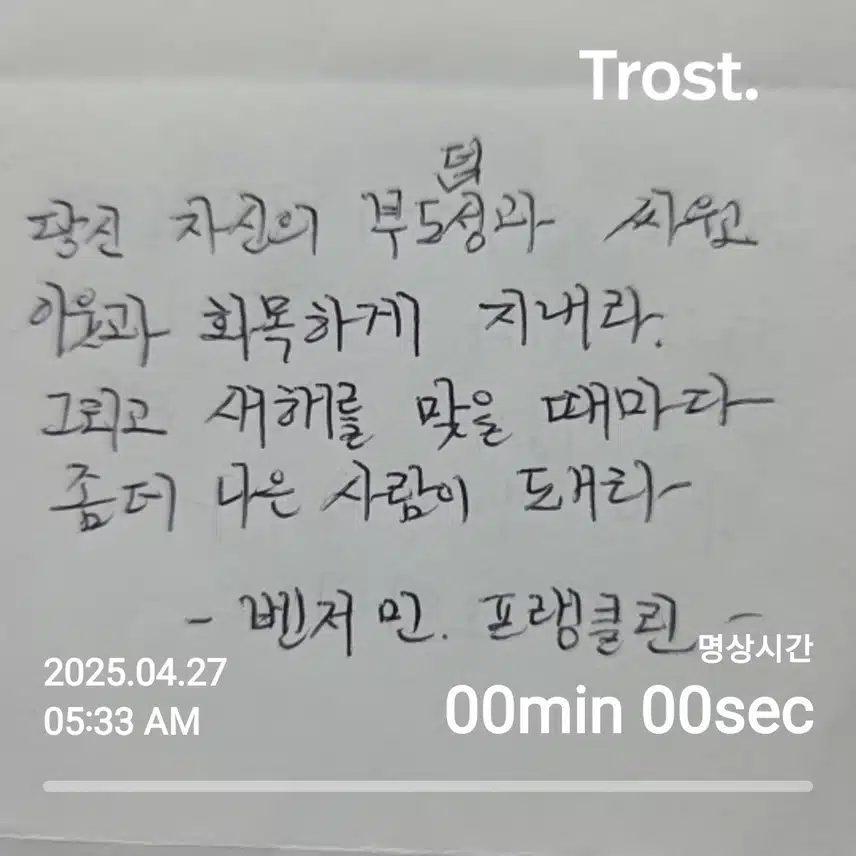 Trost.
덕
당신 자신의 부도성과 싸우고
이웃과 화목하게 지내라.
그리고 새해를 맞을 때마다
좀 더 나은 사람이 되라
- 벤저민. 프랭클린 -
명상시간
2025.04.27
00min 00sec
05:33 AM